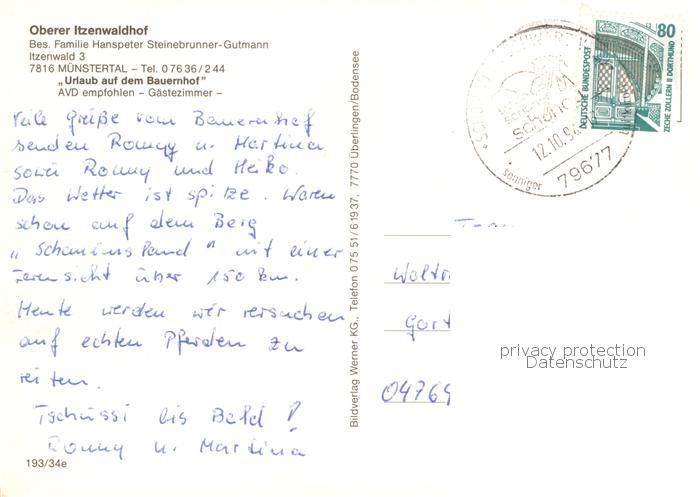 Oberer Itzenwaldhof
Bes. Familie Hanspeter Steinebrunner-Gutmann
Itzenwald 3
7816 MÜNSTERTAL – Tel. 07636/244
„Urlaub auf dem Bauernhof"
AVD empfohlen – Gästezimmer –
Viele Grüße vom Bauernhof
senden Ronny u. Martina
sowie Ronny und Heiko.
Das Wetter ist spitze. Waren
schon auf dem Berg
„Schauinsland" mit einer
Fernsicht über 150 km.
Heute werden wir versuchen
auf echten Pferden zu
reiten.
Tschüssi bis Bald!
Ronny u. Martina
193/34e
Bildverlag Werner KG., Telefon 07551/61937, 7770 Überlingen/Bodensee
sonniger
12.10.9
79677
80
DEUTSCHE BUNDESPOST
ZECHE ZOLLERN II DORTMUND
Waltr
Gart
04769
privacy protection
Datenschutz